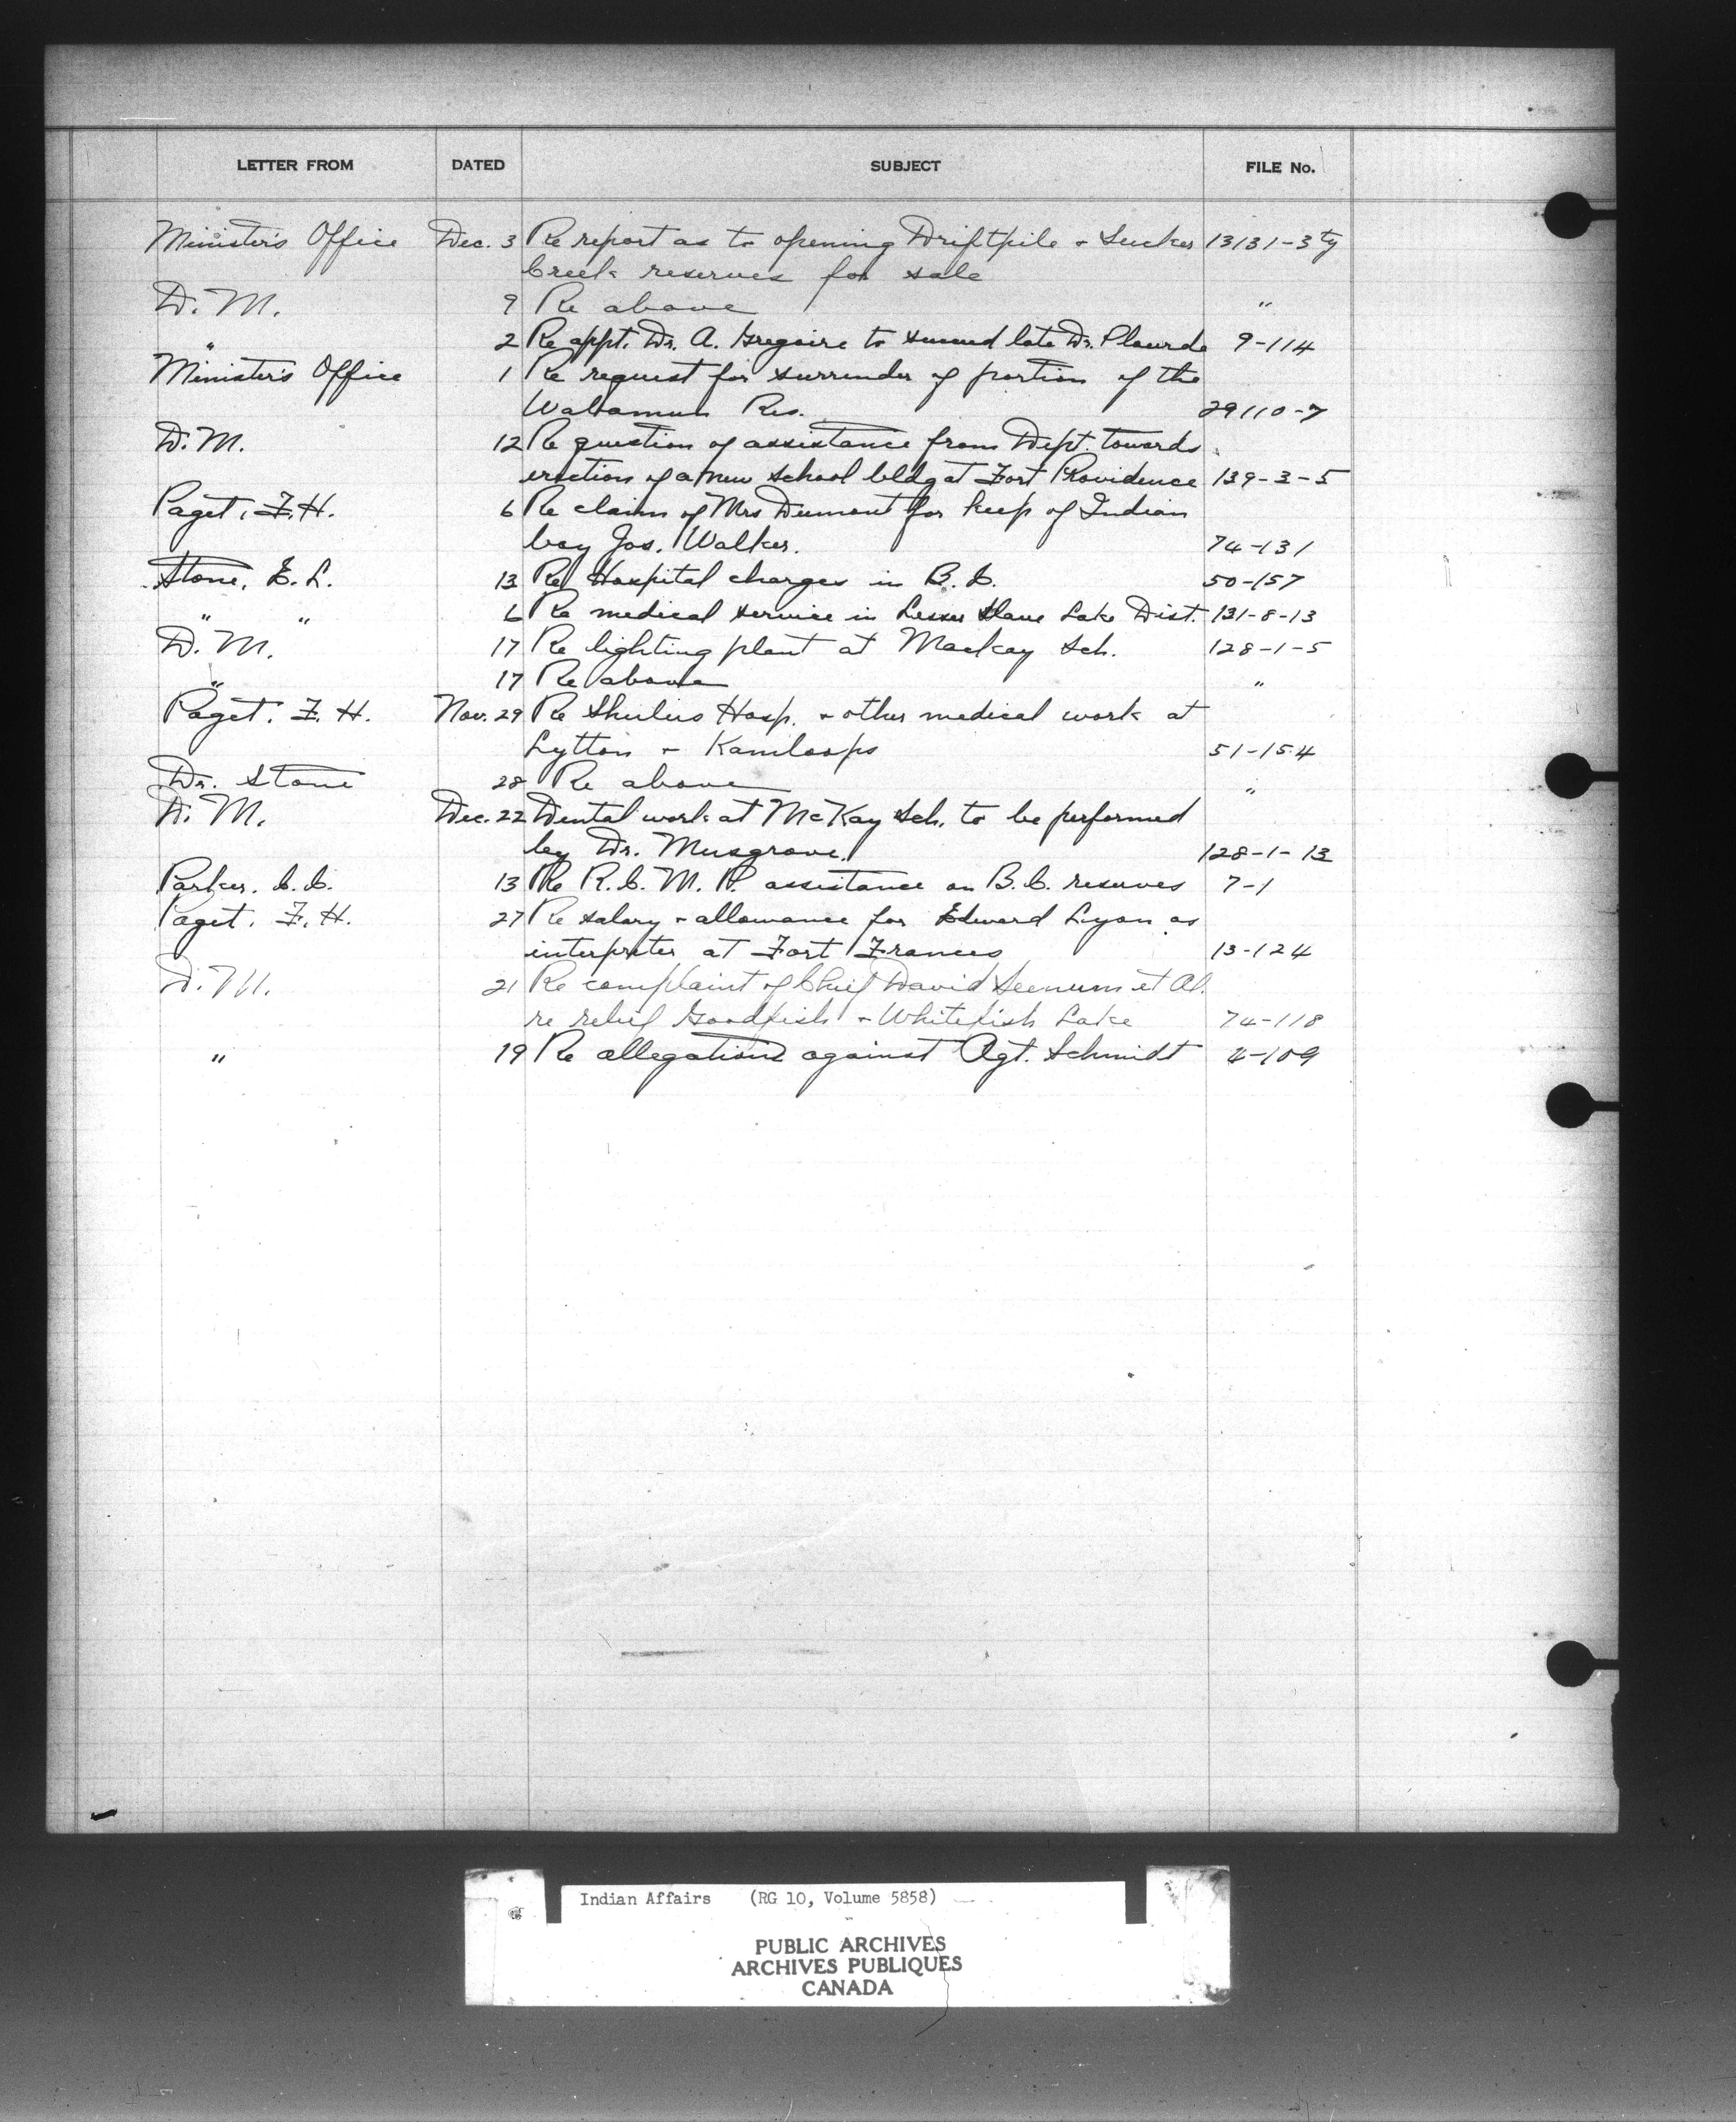 LETTER FROM DATED SUBJECT FILE No.
Minister's Office Dec. 3 Re report as to opening Driftpile & Sucker 13131-3 ty
Creek reserves for sale
D. M. 9 Re above "
" 2 Re appt. Dr. A. Gregoire to succeed late Dr. Plourde 9-114
Minister's Office 1 Re request for surrender of portion of the
Wabamun Res. 29110-7
D. M. 12 Re question of assistance from Dept. towards
erection of a new school bldg at Fort Providence 139-3-5
Paget, F. H. 6 Re claim of Mrs Dumont for keep of Indian
boy Jos. Walker. 74-131
Stone, E. L. 13 Re Hospital charges in B. C. 50-157
" " 6 Re medical service in Lesser Slave Lake Dist. 131-8-13
D. M. 17 Re lighting plant at Mackay Sch. 128-1-5
" 17 Re above "
Paget, F. H. Nov. 29 Re Shulus Hosp. & other medical work at
Lytton & Kamloops 51-154
Dr. Stone 28 Re above "
D. M. Dec. 22 Dental work at McKay Sch. to be performed
by Dr. Musgrove. 128-1-13
Parker, C. C. 13 Re R. C. M. P. assistance on B. C. reserves 7-1
Paget, F. H. 27 Re salary & allowance for Edward Lyon as
interpreter at Fort Frances 13-124
D. M. 21 Re complaint of Chief David Seenum et Al.
re relief Goodfish & Whitefish Lake 74-118
" 19 Re allegations against Agt. Schmidt 4-109
Indian Affairs (RG 10, Volume 5858)
PUBLIC ARCHIVES
ARCHIVES PUBLIQUES
CANADA